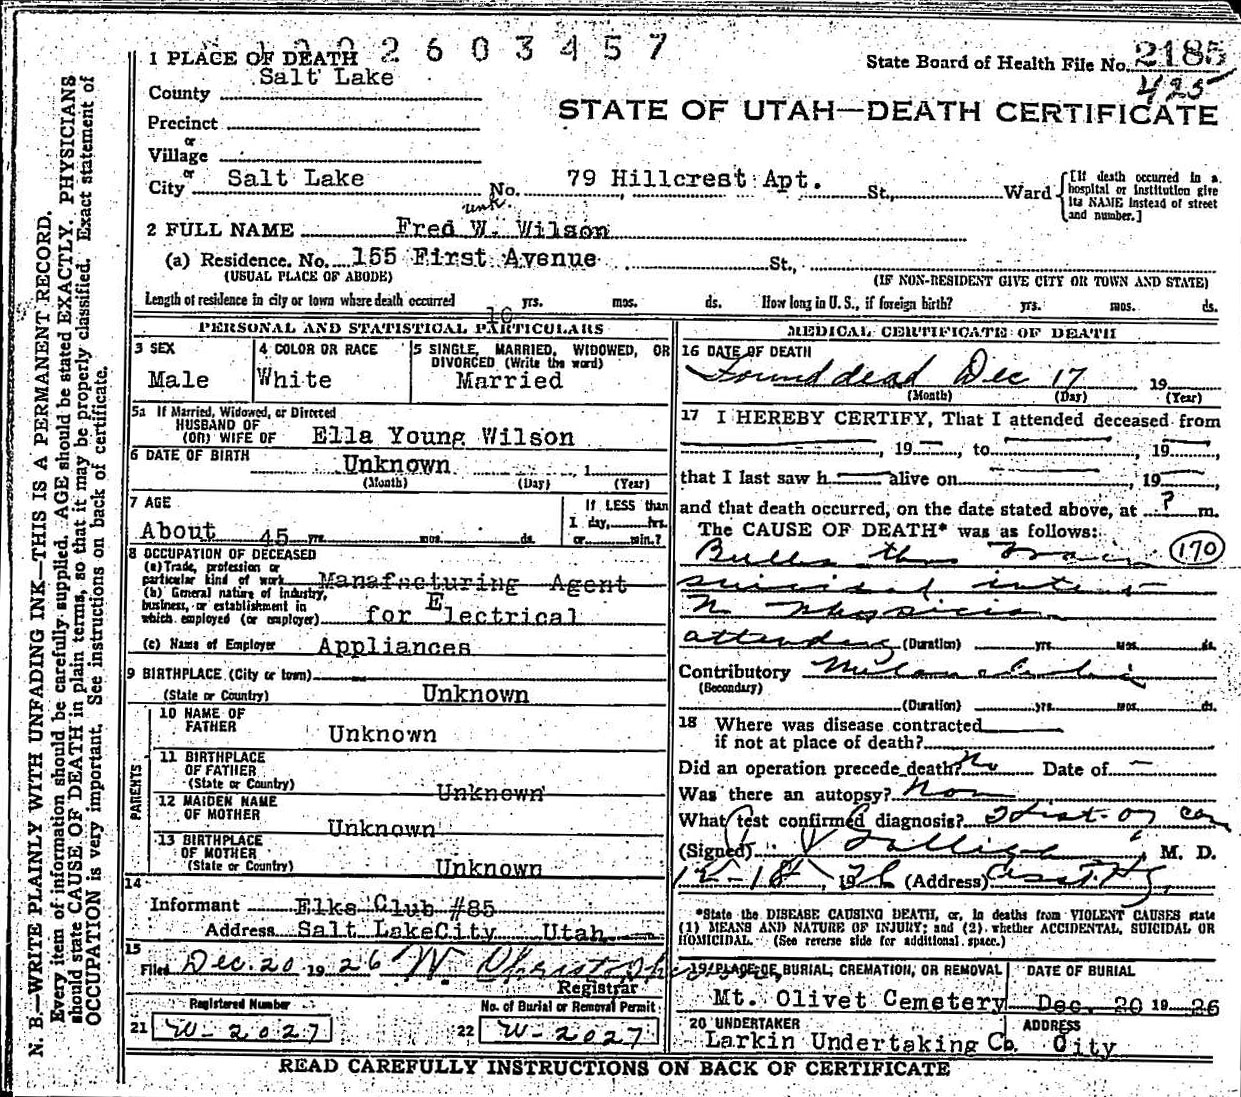 1002603457
1 PLACE OF DEATH
State Board of Health File No. 2185
425
County Salt Lake
STATE OF UTAH—DEATH CERTIFICATE
Precinct
or
Village
or
City Salt Lake No. 79 Hillcrest Apt. St., Ward
[If death occurred in a hospital or institution give its NAME instead of street and number.]
unk.
2 FULL NAME Fred W. Wilson
(a) Residence. No. 155 First Avenue St.,
(USUAL PLACE OF ABODE) (IF NON-RESIDENT GIVE CITY OR TOWN AND STATE)
Length of residence in city or town where death occurred 10 yrs. mos. ds. How long in U. S., if foreign birth? yrs. mos. ds.
PERSONAL AND STATISTICAL PARTICULARS
3 SEX
Male
4 COLOR OR RACE
White
5 SINGLE, MARRIED, WIDOWED, OR
DIVORCED (Write the word)
Married
5a If Married, Widowed, or Divorced
HUSBAND OF
(OR) WIFE OF Ella Young Wilson
6 DATE OF BIRTH
Unknown 1
(Month) (Day) (Year)
7 AGE
About 45 yrs. mos. ds.
If LESS than
1 day, hrs.
or min.?
8 OCCUPATION OF DECEASED
(a) Trade, profession or
particular kind of work Manafacturing Agent
(b) General nature of industry,
business, or establishment in
which employed (or employer) for Electrical
(c) Name of Employer Appliances
9 BIRTHPLACE (City or town)
(State or Country) Unknown
PARENTS
10 NAME OF
FATHER Unknown
11 BIRTHPLACE
OF FATHER
(State or Country) Unknown
12 MAIDEN NAME
OF MOTHER Unknown
13 BIRTHPLACE
OF MOTHER
(State or Country) Unknown
14
Informant Elks Club #85
Address Salt LakeCity Utah
15
Filed Dec. 20 1926 W. Christopherson,
Registrar
Registered Number
21 W-2027
No. of Burial or Removal Permit
22 W-2027
MEDICAL CERTIFICATE OF DEATH
16 DATE OF DEATH
Found dead Dec 17 19
(Month) (Day) (Year)
17 I HEREBY CERTIFY, That I attended deceased from
, 19 , to , 19 ,
that I last saw h alive on , 19 ,
and that death occurred, on the date stated above, at ? m.
The CAUSE OF DEATH* was as follows:
Bullet thru Brain 170
suicidal intent
No Physician
attending (Duration) yrs. mos. ds.
Contributory
(Secondary)
(Duration) yrs. mos. ds.
18 Where was disease contracted
if not at place of death?
Did an operation precede death? No Date of —
Was there an autopsy? None
What test confirmed diagnosis? Hist. of case
(Signed) M. D.
12-18, 1926 (Address)
*State the DISEASE CAUSING DEATH, or, in deaths from VIOLENT CAUSES state
(1) MEANS AND NATURE OF INJURY; and (2) whether ACCIDENTAL, SUICIDAL OR
HOMICIDAL. (See reverse side for additional space.)
19 PLACE OF BURIAL, CREMATION, OR REMOVAL
Mt. Olivet Cemetery
DATE OF BURIAL
Dec. 20 1926
20 UNDERTAKER
Larkin Undertaking Co.
ADDRESS
City
READ CAREFULLY INSTRUCTIONS ON BACK OF CERTIFICATE
N. B.—WRITE PLAINLY WITH UNFADING INK—THIS IS A PERMANENT RECORD.
Every item of information should be carefully supplied. AGE should be stated EXACTLY. PHYSICIANS
should state CAUSE OF DEATH in plain terms, so that it may be properly classified. Exact statement of
OCCUPATION is very important. See instructions on back of certificate.